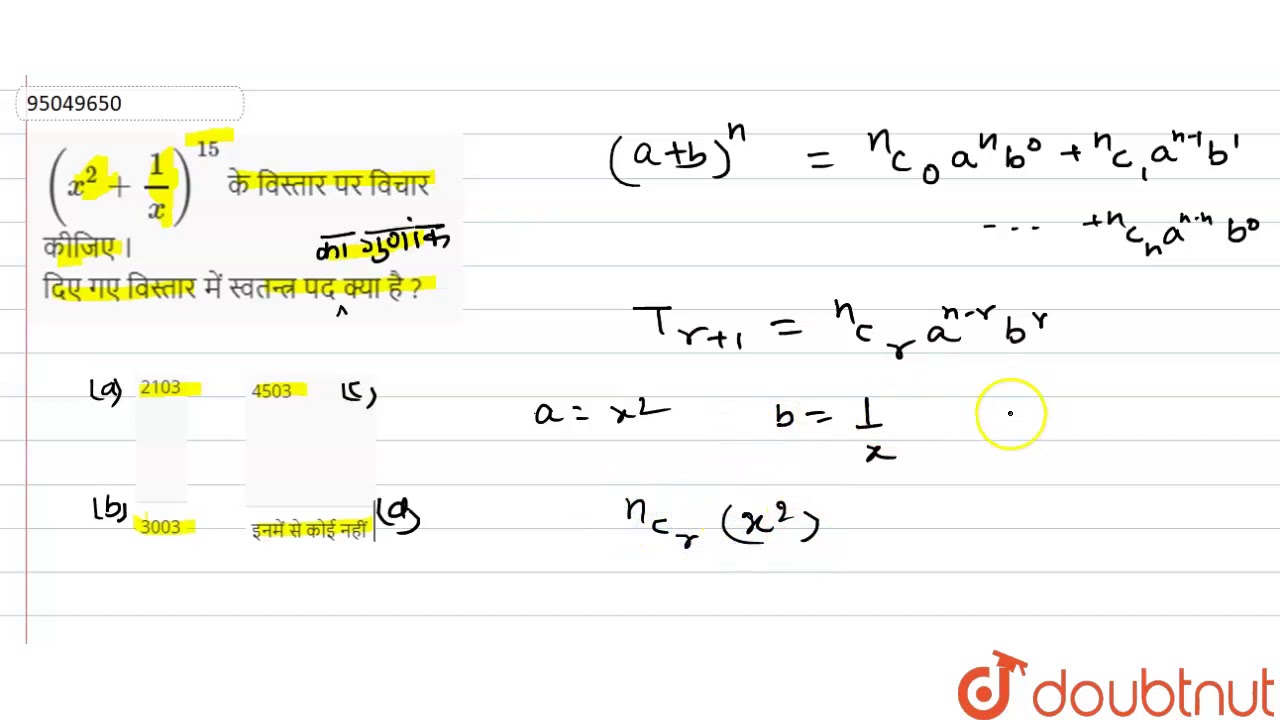 95049650
(x² + 1/x)¹⁵ के विस्तार पर विचार
कीजिए ।
का गुणांक
दिए गए विस्तार में स्वतन्त्र पद क्या है ?
^
(a) 2103
4503 (c)
(b) 3003
इनमें से कोई नहीं (d)
(a+b)ⁿ = ⁿC₀ aⁿ b⁰ + ⁿC₁ aⁿ⁻¹ b¹
--- ... + ⁿCₙ aⁿ⁻ⁿ b⁰
Tᵣ₊₁ = ⁿCᵣ aⁿ⁻ʳ bʳ
a = x² b = 1/x
ⁿCᵣ (x²)
doubtnut